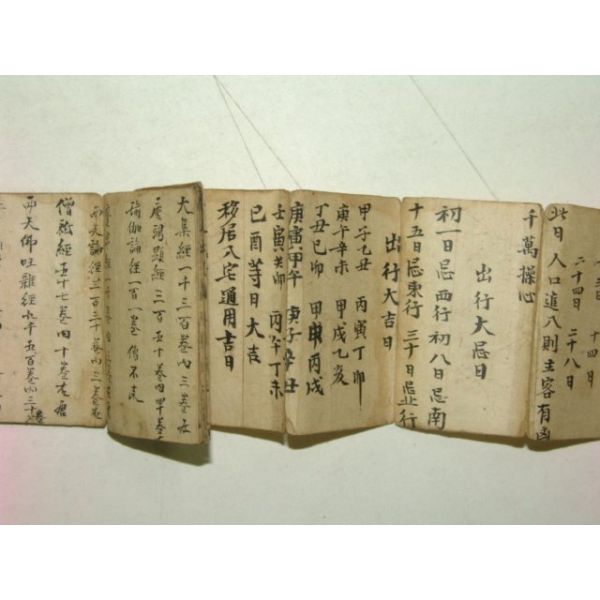 十四日
二十四日 二十八日
此日 人口進八則主客有凶
千萬操心
出行大忌日
初一日忌西行 初八日忌南
十五日忌東行 三十日忌北行
出行大吉日
甲子乙丑 丙寅丁卯
庚午辛未 甲戌乙亥
丁丑己卯 甲申丙戌
庚寅甲午 庚子辛丑
壬寅癸卯 丙午丁未
己酉等日大吉
移居入宅通用吉日
大集經一千三百卷內三卷
三百五十卷內四十卷
瑜伽論經一百一卷
西天論經三百三十卷內三卷
僧祗經五十七卷內十卷在唐
西天佛 雜經九千五百卷內三十